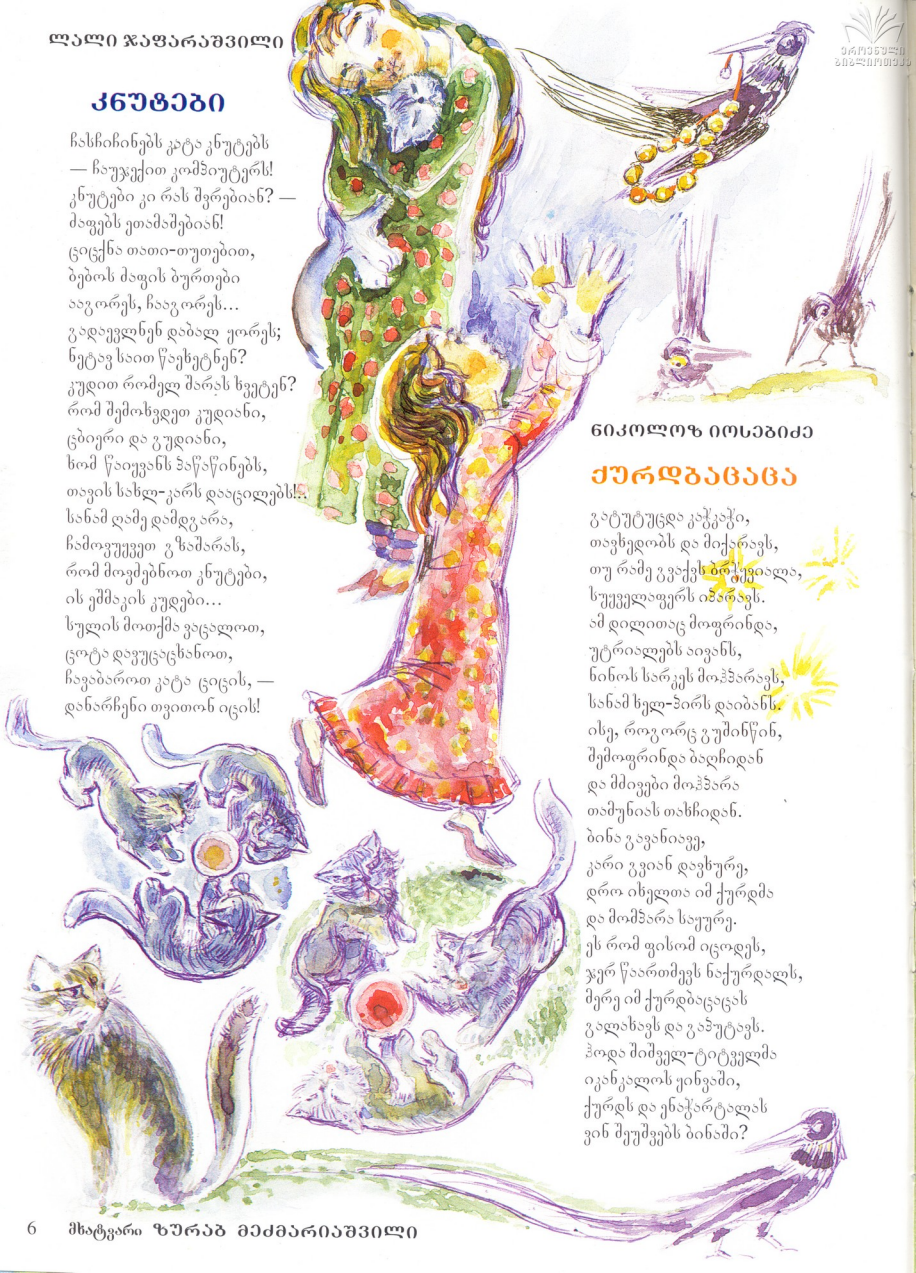 ლალი ჯაფარაშვილი
კნუტები
ჩასჩიჩინებს კატა კნუტებს
— ჩაუჯექით კომპიუტერს!
კნუტები კი რას შვრებიან? —
მაფებს ეთამაშებიან!
ციცქნა თათი-თუთებით,
ბებოს მაფის ბურთები
ააგორეს, ჩააგორეს...
გადაევლნენ დაბალ ყორეს;
ნეტავ საით წაეხეტნენ?
კუდით რომელ შარას ხვეტენ?
რომ შემოხვდეთ კუდიანი,
ცბიერი და გუდიანი,
ხომ წაიყვანს პაწაწინებს,
თავის სახლ-კარს დააცილებს!..
სანამ ღამე დამდგარა,
ჩამოვუყვეთ გზაშარას,
რომ მოვძებნოთ კნუტები,
ის ეშმაკის კუდები...
სულის მოთქმა ვაცალოთ,
ცოტა დავუცაცხანოთ,
ჩავაბაროთ კატა ციცის, —
დანარჩენი თვითონ იცის!
ნიკოლოზ იოსებიძე
ქურდბაცაცა
გატუტუცდა კაჭკაჭი,
თავხედობს და მიქარავს,
თუ რამე გვაქვს ბრჭყვიალა,
სუყველაფერს იპარავს.
ამ დილითაც მოფრინდა,
უტრიალებს აივანს,
ნინოს სარკეს მოჰპარავს,
სანამ ხელ-პირს დაიბანს.
ისე, როგორც გუშინწინ,
შემოფრინდა ბაღჩიდან
და მძივები მოჰპარა
თამუნიას თახჩიდან.
ბინა გავანიავე,
კარი გვიან დავხურე,
დრო იხელთა იმ ქურდმა
და მომპარა საყურე.
ეს რომ ფისომ იცოდეს,
ჯერ წაართმევს ნაქურდალს,
მერე იმ ქურდბაცაცას
გალახავს და გაპუტავს.
ჰოდა შიშველ-ტიტველმა
იკანკალოს ყინვაში,
ქურდს და ენაჭარტალას
ვინ შეუშვებს ბინაში?
6 მხატვარი ზურაბ მეძმარიაშვილი
ეროვნული
ბიბლიოთეკა